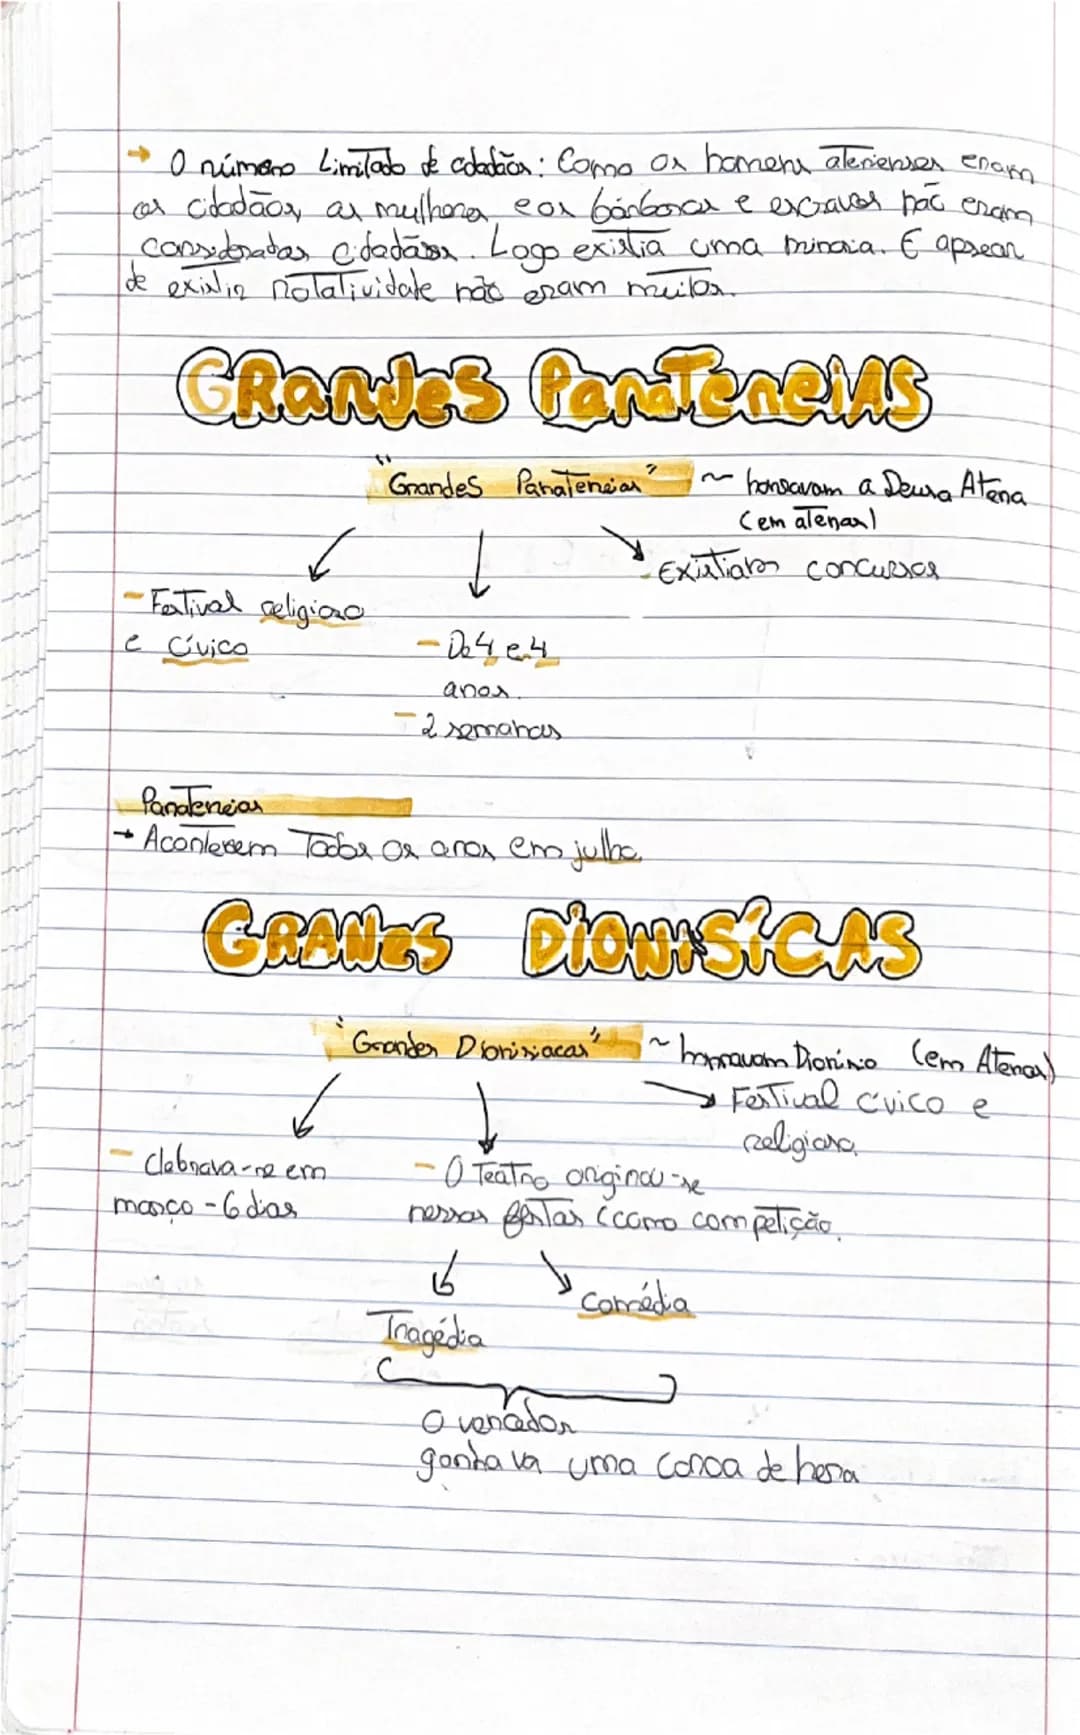 → O número Limitado de cidadãos: Como os homens atenienses eram
os cidadãos, as mulheres, e os bárbaros e escravos não eram
considerados cidadãos. Logo existia uma minoria. E apsear
de existir rotatividade não eram muitos.
GRandes PanaTeneiAS
"Grandes PanaTeneias" ~ honravam a Deusa Atena
(em aTenas)
Existiam concursos
- FesTival religioso
e Cívico
- De 4 e 4
anos.
- 2 semanas
Panateneias
→ Acontecem Todos os anos em julho.
GRANDES DIONISÍCAS
"Grandes Dionisíacas" ~ honravam Dionísio (em ATenas)
→ FesTival cívico e
religioso.
- Clebrava-se em
março - 6 dias
- O TeaTro originou-se
nessas festas (como competição.
Tragédia
Comédia
O vencedor
ganhava uma coroa de hera